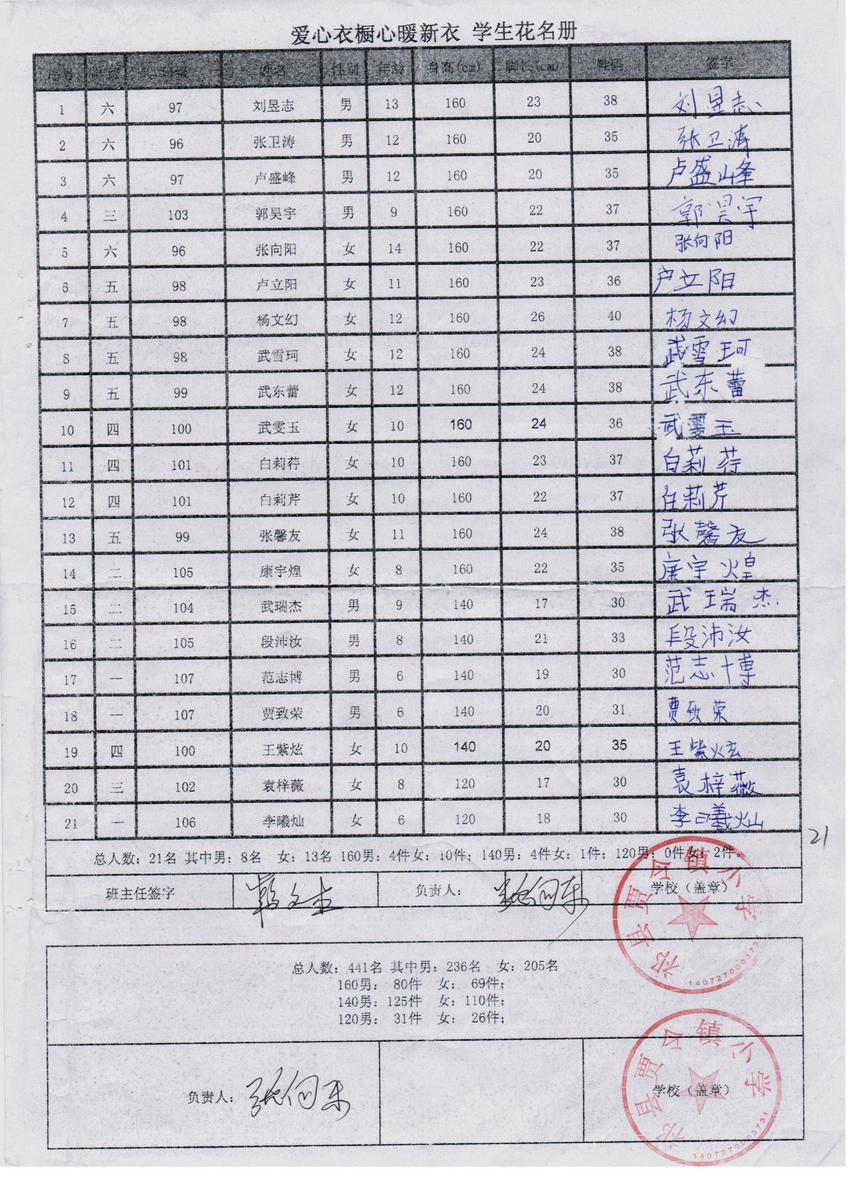 爱心衣橱心暖新衣 学生花名册
序号 年级 班级 姓名 性别 年龄 身高(cm) 脚长(cm) 鞋码 签字
1 六 97 刘昱志 男 13 160 23 38 刘昱志
2 六 96 张卫涛 男 12 160 20 35 张卫涛
3 六 97 卢盛峰 男 12 160 20 35 卢盛峰
4 三 103 郭昊宇 男 9 160 22 37 郭昊宇
5 六 96 张向阳 女 14 160 22 37 张向阳
6 五 98 卢立阳 女 11 160 23 36 卢立阳
7 五 98 杨文幻 女 12 160 26 40 杨文幻
8 五 98 武雪珂 女 12 160 24 38 武雪珂
9 五 99 武东蕾 女 12 160 24 38 武东蕾
10 四 100 武雯玉 女 10 160 24 36 武雯玉
11 四 101 白莉荇 女 10 160 23 37 白莉荇
12 四 101 白莉芹 女 10 160 22 37 白莉芹
13 五 99 张馨友 女 11 160 24 38 张馨友
14 二 105 康宇煌 女 8 160 22 35 康宇煌
15 二 104 武瑞杰 男 9 140 17 30 武瑞杰
16 二 105 段沛汝 男 8 140 21 33 段沛汝
17 一 107 范志博 男 6 140 19 30 范志博
18 一 107 贾致荣 男 6 140 20 31 贾致荣
19 四 100 王紫炫 女 10 140 20 35 王紫炫
20 三 102 袁梓薇 女 8 120 17 30 袁梓薇
21 一 106 李曦灿 女 6 120 18 30 李曦灿
21
总人数：21名 其中男：8名 女：13名 160男：4件女：10件；140男：4件女：1件；120男：0件女：2件。
班主任签字 负责人： 张向东 学校（盖章）
祁县贾令镇小学
1407270003731
总人数：441名 其中男：236名 女：205名
160男： 80件 女： 69件；
140男：125件 女：110件；
120男： 31件 女： 26件；
负责人： 张向东 学校（盖章）
祁县贾令镇小学
1407270003731